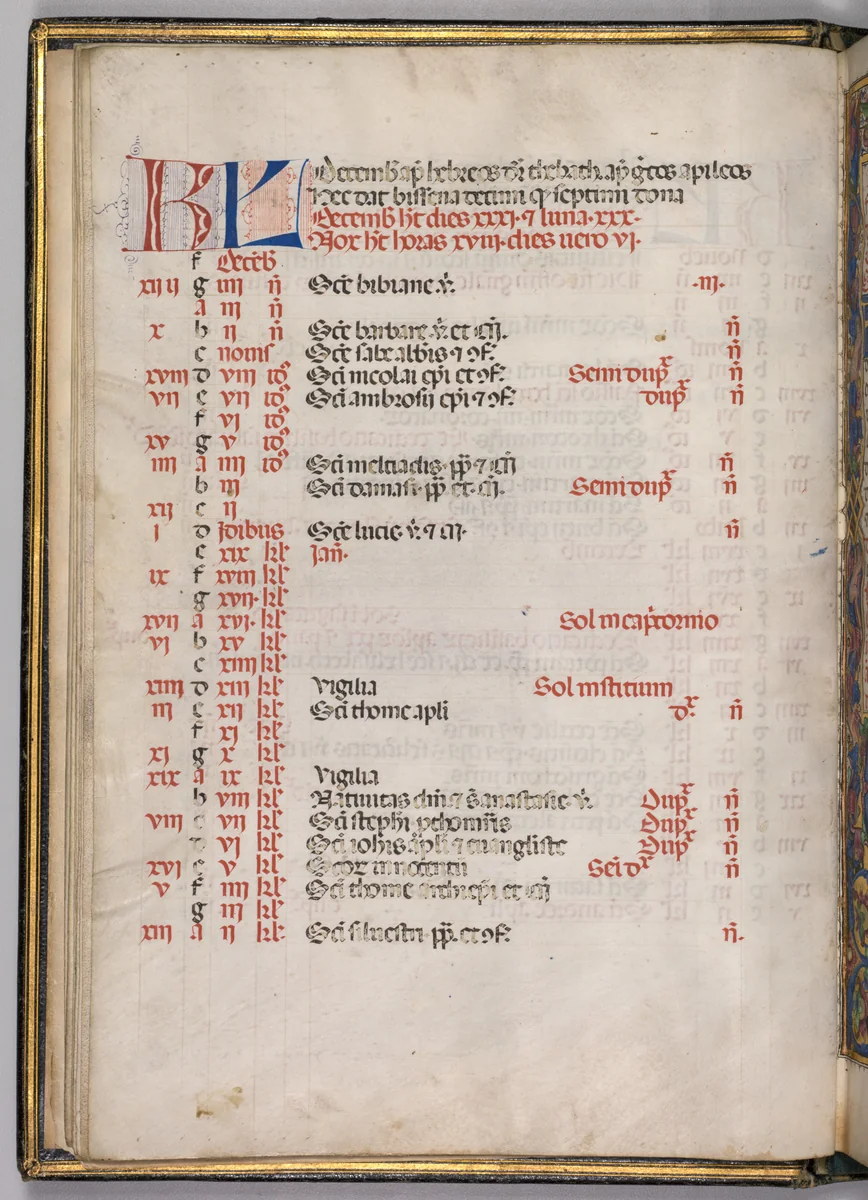 KL Decemb ap hebreos dr thebath ap gcos apileos
Nec dat bissena decimi q septimi dona
Decemb ht dies xxxi · 7 luna · xxx ·
Nox ht horas xviii · dies uero vi ·
f Deceb
xiii g iiii n Sce bibiane v. · iii ·
a iii n
x b ii n Sce barbare v. et m. n
c nonis Sce sabe abbis 7 9f. n
xviii d viii id Sci nicolai epi et 9f. Semi dup n
vii e vii id Sci ambrosij epi 7 9f. dup n
f vi id
xv g v id
iiii a iiii id Sci melciadis · pp 7 m n
b iii Sci damasi · pp et · m. Semi dup n
xii c ii
i d Idibus Sce lucie · v. 7 m · n
e xix kl Ian ·
ix f xviii kl
g xvii · kl
xvii a xvi · kl Sol in capcornio
vi b xv kl
c xiiii kl
xiiii d xiii kl Vigilia Sol institium
iii e xii kl Sci thome apli d. n
f xi kl
xi g x kl
xix a ix kl Vigilia
b viii kl Natiuitas dni 7 s anastasie · v. Dup n
viii c vii kl Sci stephi · pthomris Dup n
d vi kl Sci iohis apli 7 euangliste Dup n
xvi e v kl Scor innocentu Sei d n
v f iiii kl Sci thome archiepi et m
g iii kl
xiii a ii kl · Sci siluestri · pp. et 9f. n ·